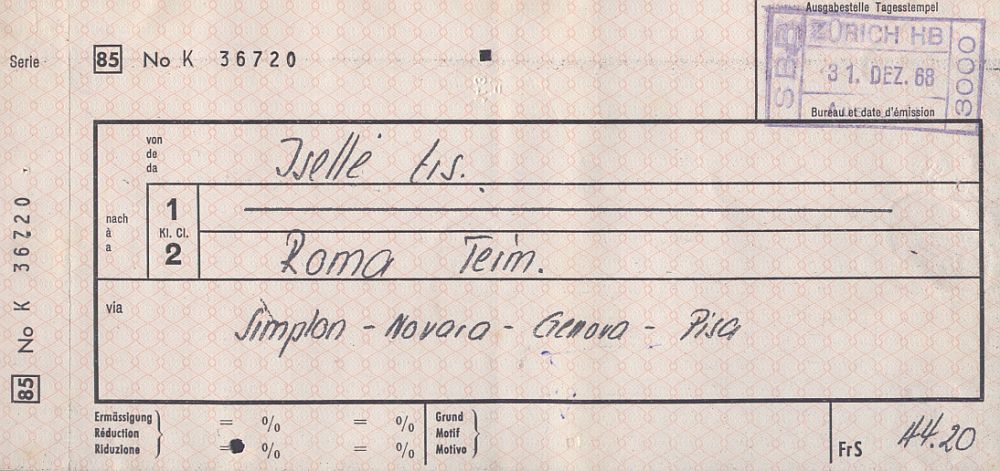 Ausgabestelle Tagesstempel
SBB ZÜRICH HB 3000
31. DEZ. 68
Bureau et date d'émission
Serie 85 No K 36720
von
de
da
Iselle trs.
nach
à
a
1
Kl. Cl.
2
Roma Term.
via
Simplon - Novara - Genova - Pisa
85 No K 36720
Ermässigung = % = %
Réduction
Riduzione = % = %
Grund
Motif
Motivo
FrS 44.20